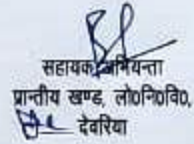 सहायक अभियन्ता
प्रान्तीय खण्ड, लो0नि0वि0,
देवरिया